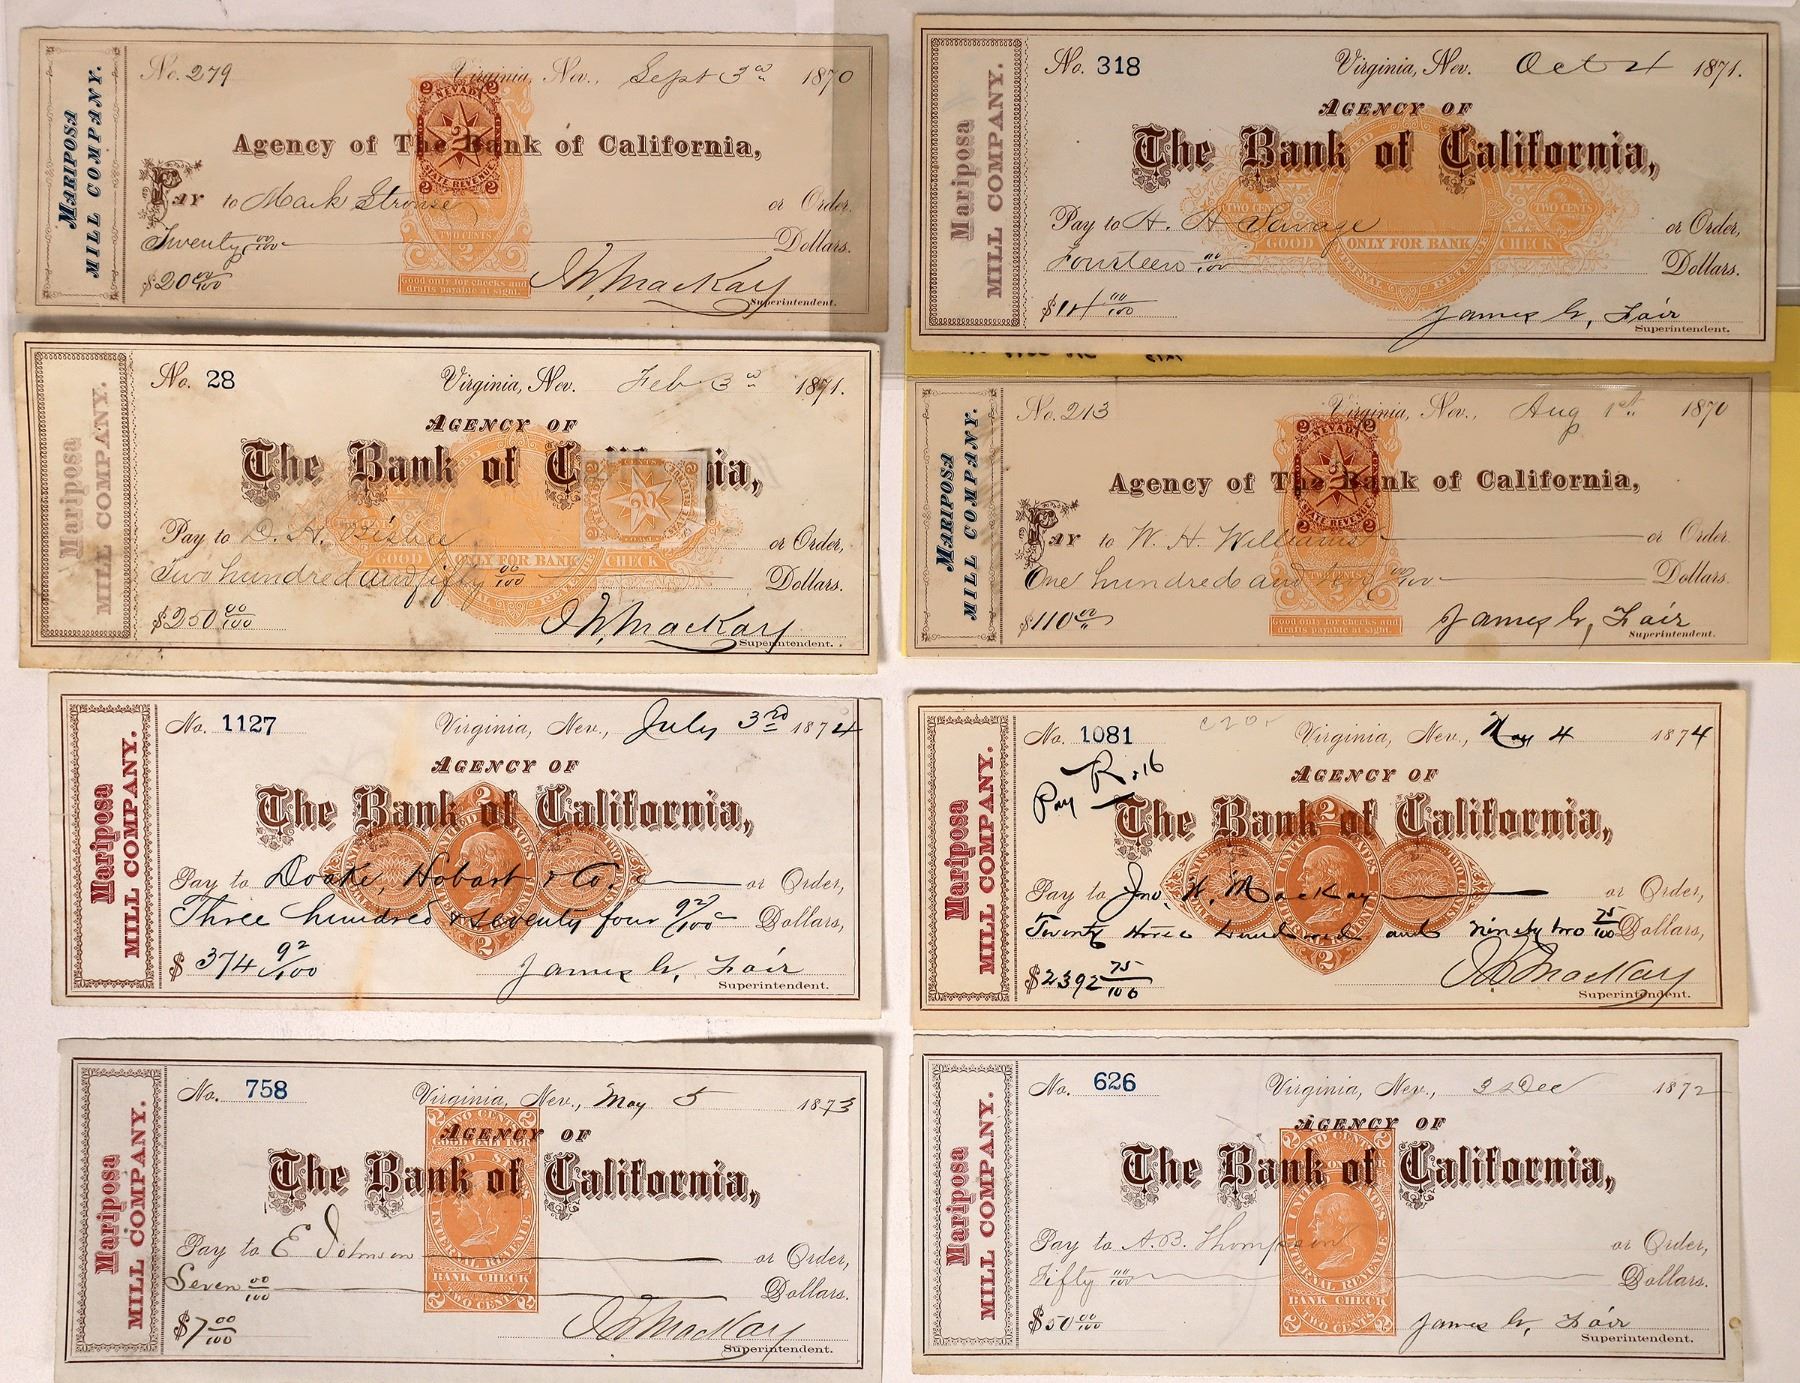 MARIPOSA
MILL COMPANY.
No. 279 Virginia, Nev., Sept 3rd 1870
2 2
NEVADA
2
STATE REVENUE
2 2
Agency of The Bank of California,
PAY to Mark Strouse or Order.
TWO CENTS
Twenty 00/100 Dollars.
2
$20 00/100
Good only for checks and
drafts payable at sight.
J W Mackay
Superintendent.
Mariposa
MILL COMPANY.
No. 318 Virginia, Nev. Oct 4 1871.
AGENCY OF
The Bank of California,
TWO CENTS TWO CENTS
Pay to H. H. Savage or Order,
GOOD ONLY FOR BANK CHECK
Fourteen 00/100 Dollars.
$14 00/100
James G. Fair
Superintendent.
Mariposa
MILL COMPANY.
No. 28 Virginia, Nev. Feb 3rd 1871.
AGENCY OF
The Bank of C nia,
2 CENTS 2
Pay to D. H. Bisbee or Order,
GOOD ONLY FOR BANK CHECK
Two hundred and fifty 00/100 Dollars.
$250 00/100
J W Mackay
Superintendent.
MARIPOSA
MILL COMPANY.
No. 213 Virginia, Nev., Aug 1st 1870
2 2
NEVADA
STATE REVENUE
2 2
Agency of The Bank of California,
PAY to W. H. Williams or Order.
One hundred and ten 00/100 Dollars.
TWO CENTS
$110 00
Good only for checks and
drafts payable at sight.
James G. Fair
Superintendent.
Mariposa
MILL COMPANY.
No. 1127 Virginia, Nev., July 3rd 1874
AGENCY OF
The Bank of California,
2
UNITED STATES
Pay to Doake, Hobart & Co. or Order,
Three hundred & seventy four 92/100 Dollars,
2
$374 92/100
James G. Fair
Superintendent.
Mariposa
MILL COMPANY.
No. 1081 Virginia, Nev., May 4 1874
Pay
AGENCY OF
The Bank of California,
2
UNITED STATES
Pay to Jno. W. Mackay or Order,
Twenty three hundred and ninety two 75/100 Dollars,
2
$2392 75/100
J W Mackay
Superintendent.
Mariposa
MILL COMPANY.
No. 758 Virginia, Nev., May 5 1873
2 TWO CENTS 2
GOOD ONLY FOR
AGENCY OF
The Bank of California,
INTERNAL REVENUE
Pay to E Johnson or Order,
BANK CHECK
Seven 00/100 Dollars.
2 TWO CENTS 2
$7 00/100
J W Mackay
Superintendent.
Mariposa
MILL COMPANY.
No. 626 Virginia, Nev., 3 Dec 1872
AGENCY OF
2 TWO CENTS 2
The Bank of California,
UNITED STATES
INTERNAL REVENUE
Pay to A. B. Thompson or Order,
Fifty 00/100 Dollars.
BANK CHECK
2 TWO CENTS 2
$50 00/100
James G. Fair
Superintendent.